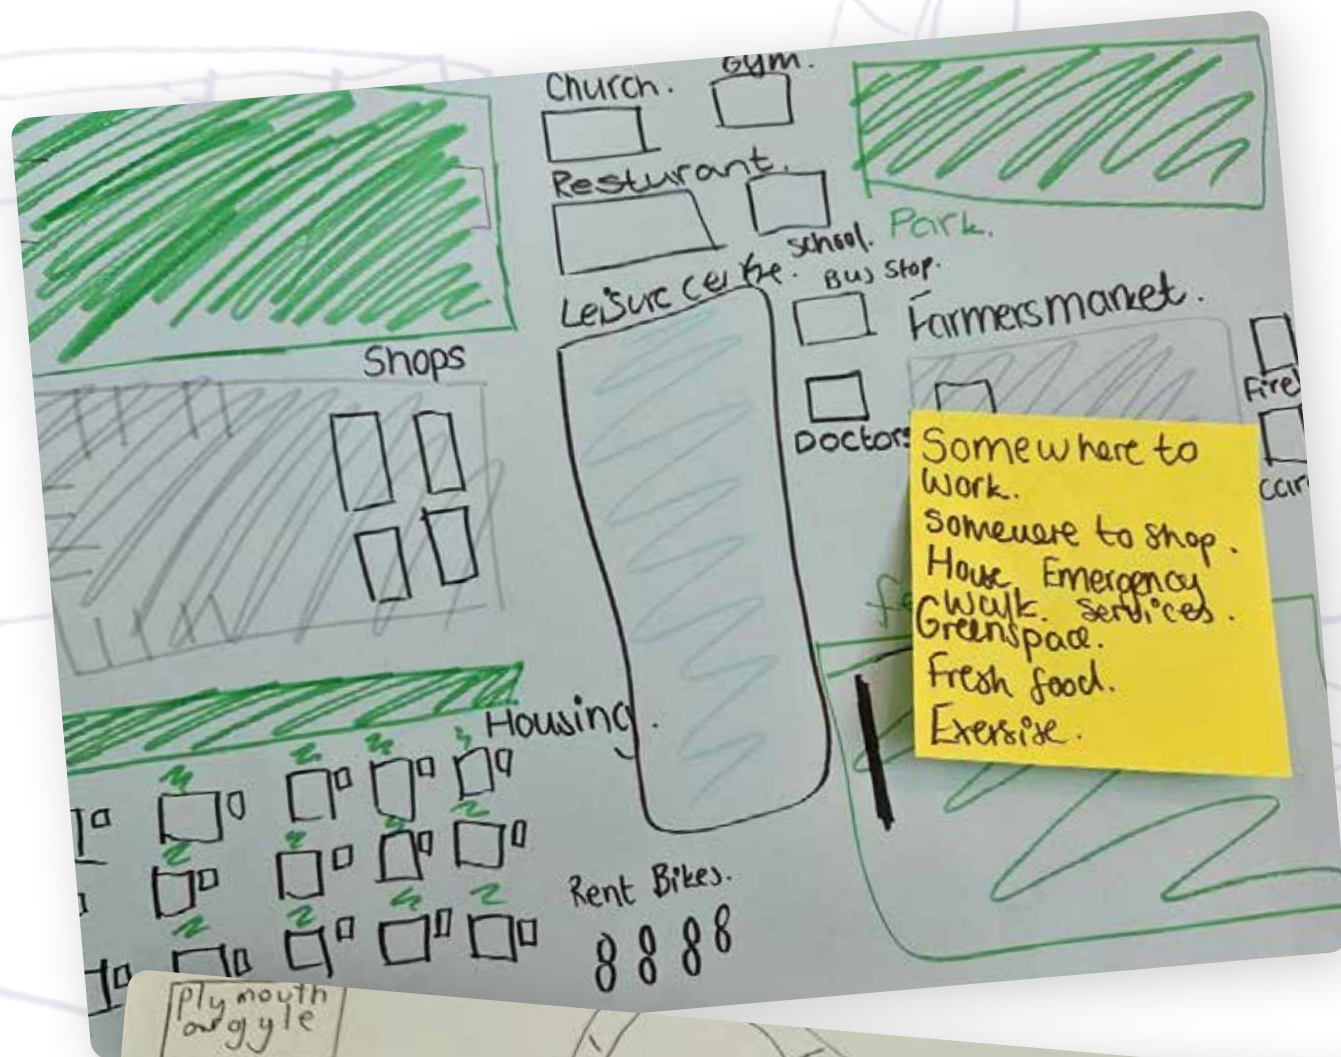 Church.
Gym.
Resturant.
School.
Park.
Leisure centre.
Bus Stop.
Farmers market.
Shops
Fire
Doctors
Somewhere to
work.
Somewere to shop.
House Emergency
Walk. Services.
Greenspace.
Fresh food.
Exersise.
Housing.
Rent Bikes.
Plymouth
argyle